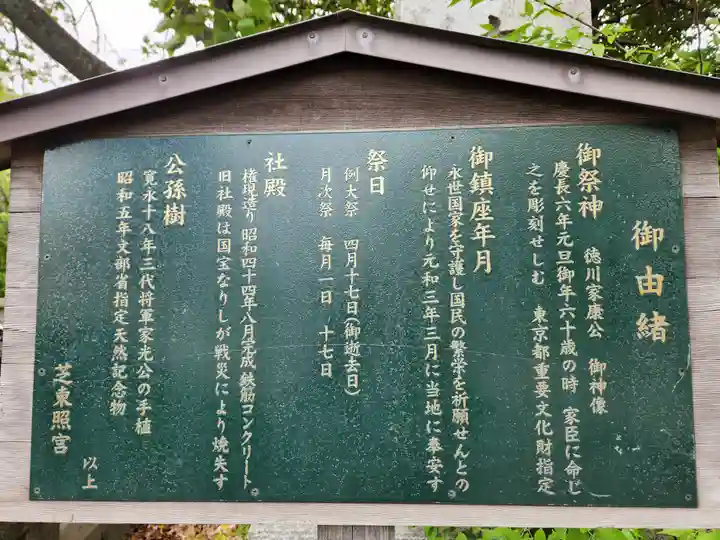 御由緒
御祭神　徳川家康公　御神像
慶長六年元旦御年六十歳の時　家臣に命じ
之を彫刻せしむ　東京都重要文化財指定
御鎮座年月
永世国家を守護し国民の繁栄を祈願せんとの
仰せにより元和三年三月に当地に奉安す
祭日
例大祭　四月十七日(御逝去日)
月次祭　毎月一日　十七日
社殿
権現造り　昭和四十四年八月完成　鉄筋コンクリート
旧社殿は国宝なりしが戦災により焼失す
公孫樹
寛永十八年三代将軍家光公の手植
昭和五年文部省指定天然記念物
芝東照宮
以上